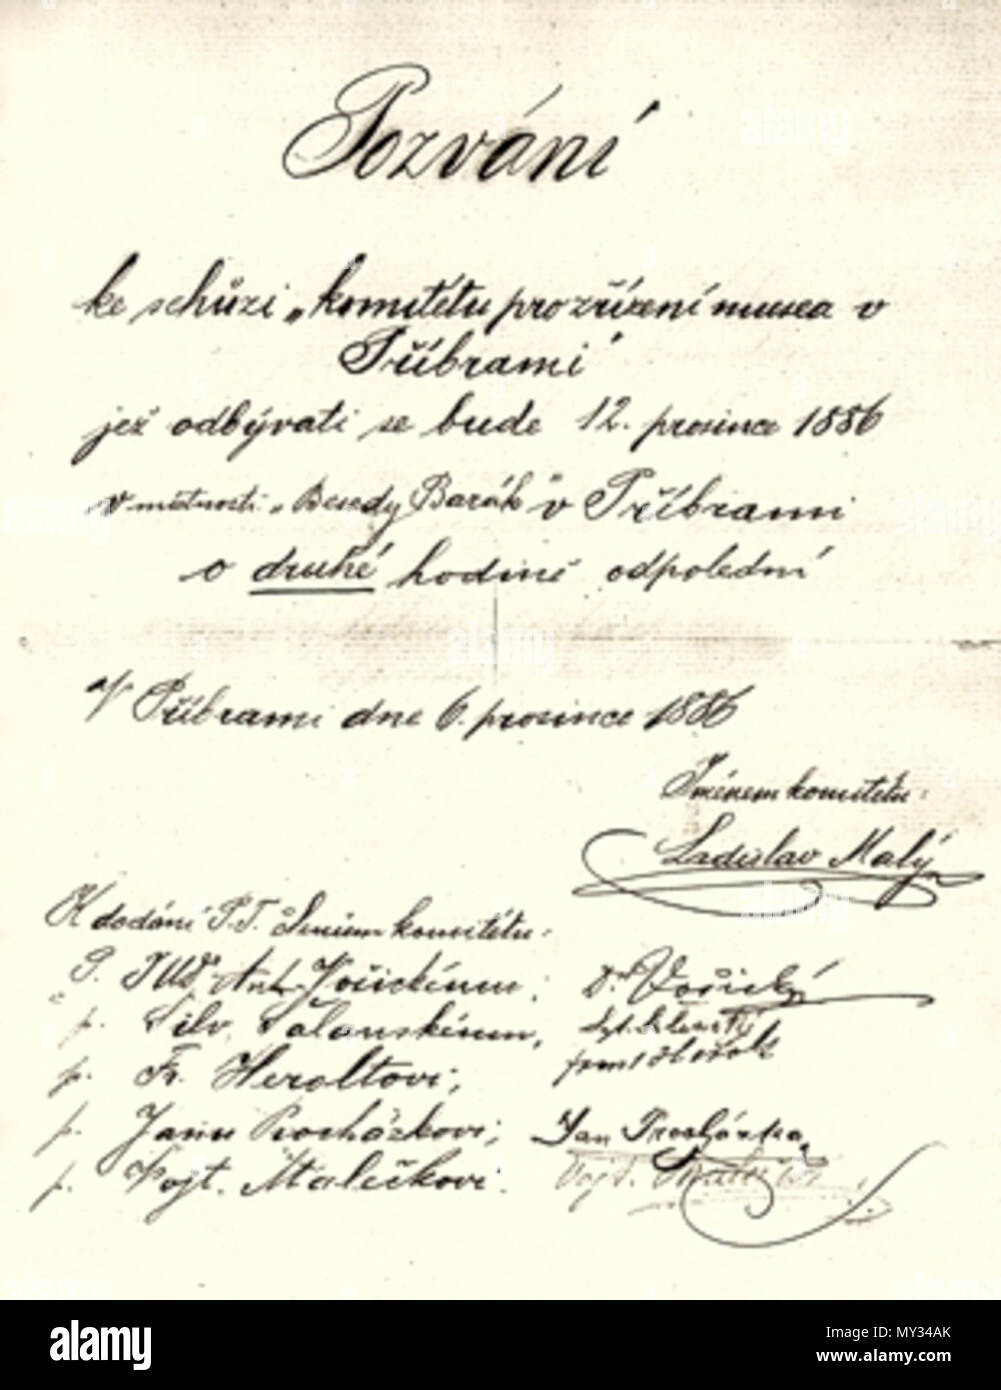 Pozvání
ke schůzi „komitétu pro zřízení musea v
Příbrami"
jež odbývati se bude 12. prosince 1886
v místnosti „Besedy Barák" v Příbrami
o druhé hodině odpolední
V Příbrami dne 6. prosince 1886
Jménem komitétu:
Ladislav Malý
K dodání P.T. členům komitétu:
P. JUDr Ant. Vořickému; Dr Vořický
p. Silv. ,
p. Fr. Heroltovi;
p. Janu Procházkovi; Jan Procházka
p. Vojt. Malečkovi. Vojt.
alamy
Image ID: MY34AK
www.alamy.com